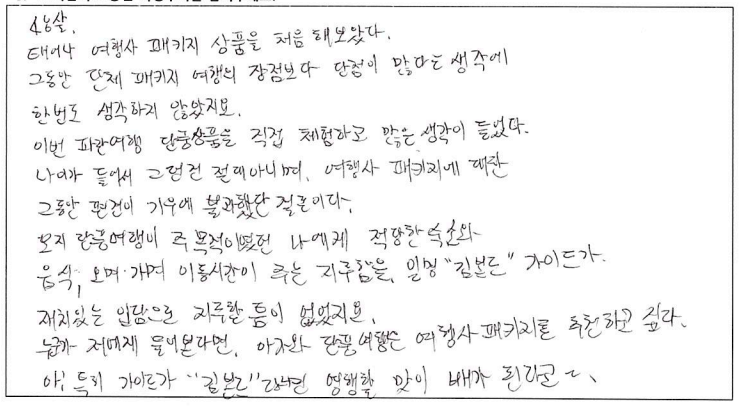 태어나 여행사 패키지 상품을 처음 해보았다.
그동안 단체 패키지 여행의 장점보다 단점이 많다는 생각에
한번도 생각하지 않았지요.
이번 파란여행 단풍상품을 직접 체험하고 많은 생각이 들었다.
나이가 들어서 그런건 절대아니며, 여행사 패키지에 대한
그동안 편견이 기우에 불과했단 결론이다.
오지 단풍여행이 주 목적이였던 나에게 적당한 숙소와
음식, 오며·가며 이동시간이 주는 지루함을, 일명 "김본드" 가이드가.
재치있는 입담으로 지루할 틈이 없었지요.
누군가 저에게 물어본다면, 여행사 패키지를 추천하고 싶다.
아! 특히 가이드가 "김본드"라면 여행할 맛이 배가 된다고~